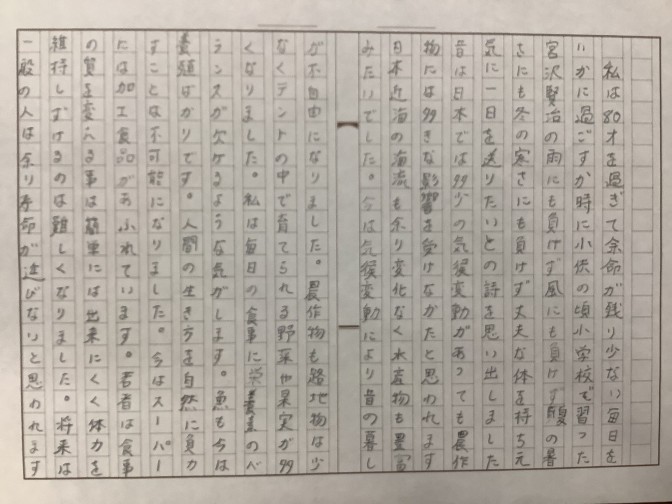 私は80才を過ぎて余命が残り少ない毎日を
いかに過ごすか時に小供の頃小学校で習った
宮沢賢治の雨にも負けず風にも負けず夏の暑
さにも冬の寒さにも負けず丈夫な体を持ち元
気に一日を送りたいとの詩を思い出しました
昔は日本では多少の気候変動があっても農作
物には多きな影響を受けなかたと思われます
日本近海の海流も余り変化なく水産物も豊富
みたいでした。今は気候変動により昔の暮し
が不自由になりました。農作物も路地物は少
なくテントの中で育てられる野菜や果実が多
くなりました。私は毎日の食事に栄養素のバ
ランスが欠けるような気がします。魚もちは
養殖ばかりです。人間の生き方を自然に負カ
すことは不可能になりました。今はスーパー
には加工食品があふれています。若者は食事
の質を変える事は簡単には出来にくく体力を
維持しずけるのは難しくなりました。将来は
一般の人は余り寿命が延びないと思われます